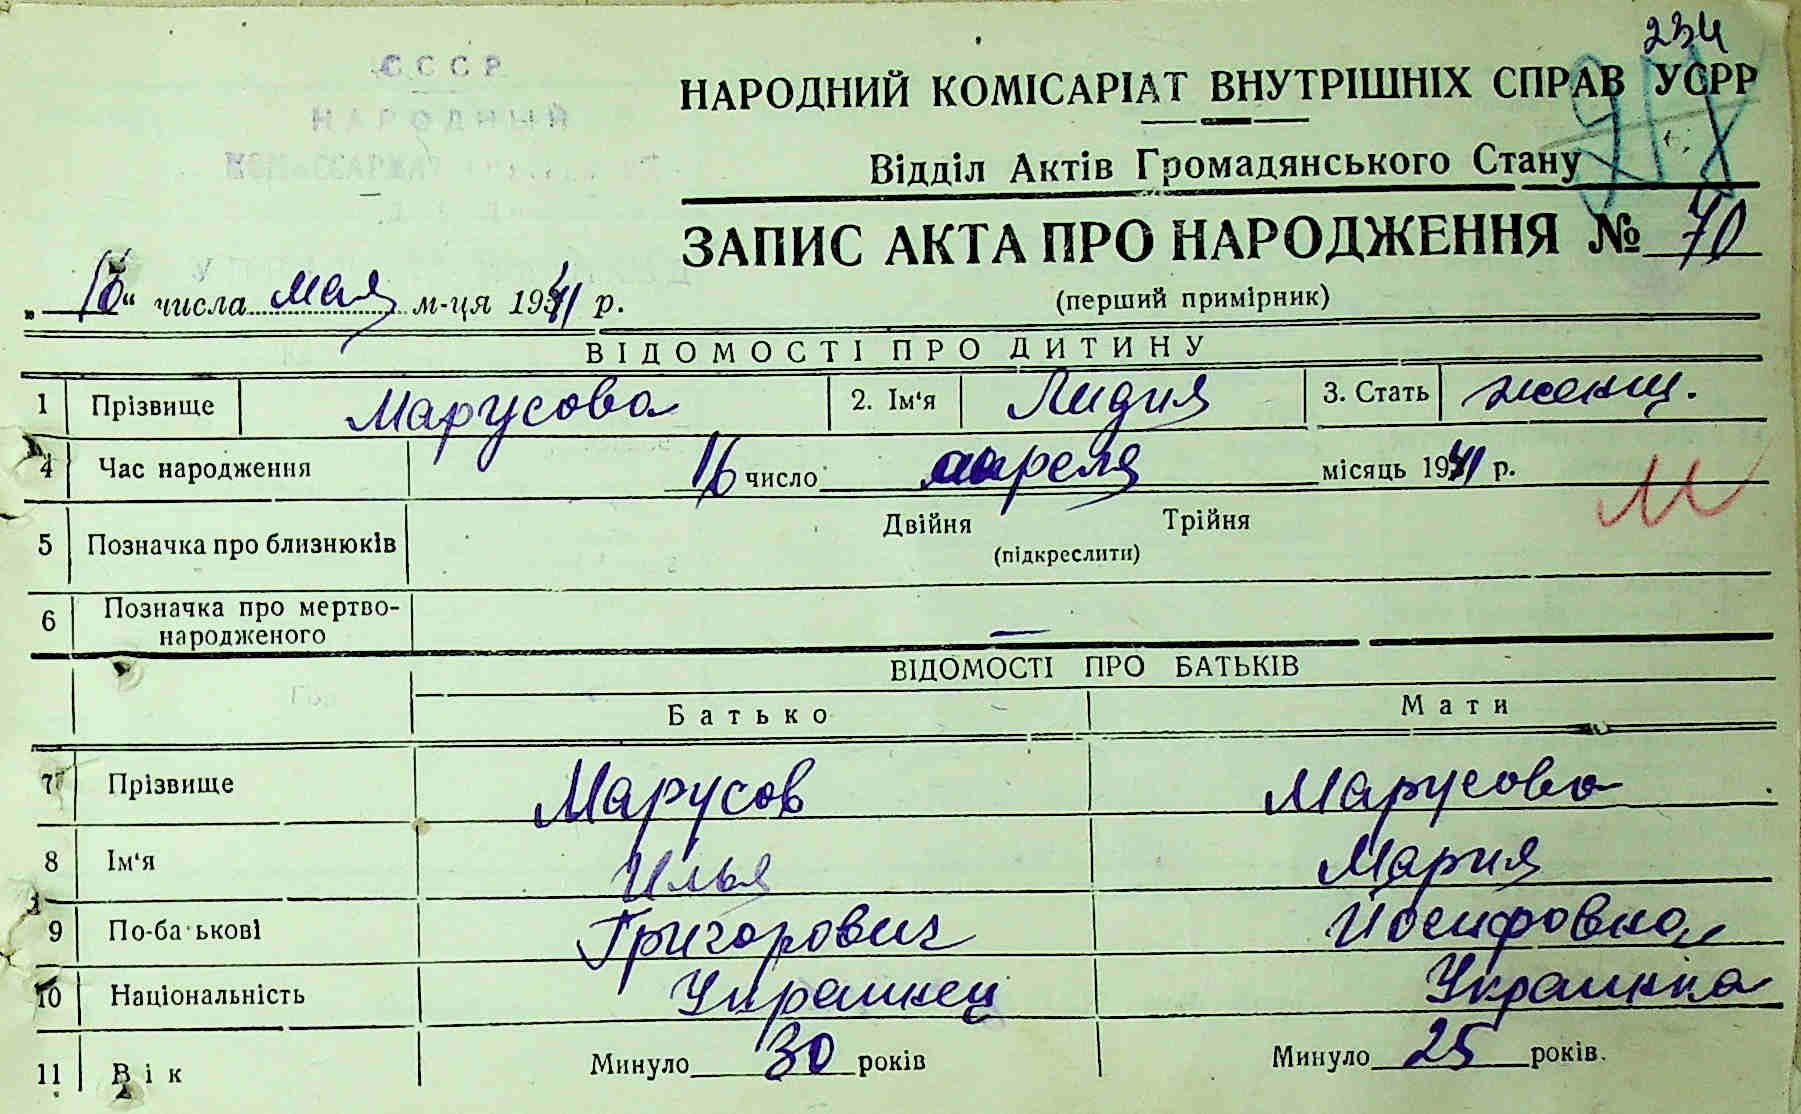 234
СССР
НАРОДНЫЙ
НАРОДНИЙ КОМІСАРІАТ ВНУТРІШНІХ СПРАВ УСРР
Відділ Актів Громадянського Стану
ЗАПИС АКТА ПРО НАРОДЖЕННЯ № 70
„16“ числа мая м-ця 1941 р.
(перший примірник)
ВІДОМОСТІ ПРО ДИТИНУ
1 Прізвище Марусова 2. Ім‘я Лидия 3. Стать женщ.
4 Час народження 16 число апреля місяць 1941 р.
5 Позначка про близнюків Двійня Трійня
(підкреслити)
6 Позначка про мертво-
народженого —
ВІДОМОСТІ ПРО БАТЬКІВ
Батько Мати
7 Прізвище Марусов Марусова
8 Ім‘я Илья Мария
9 По-батькові Григорович Иосифовна
10 Національність Украинец Украинка
11 Вік Минуло 30 років Минуло 25 років.